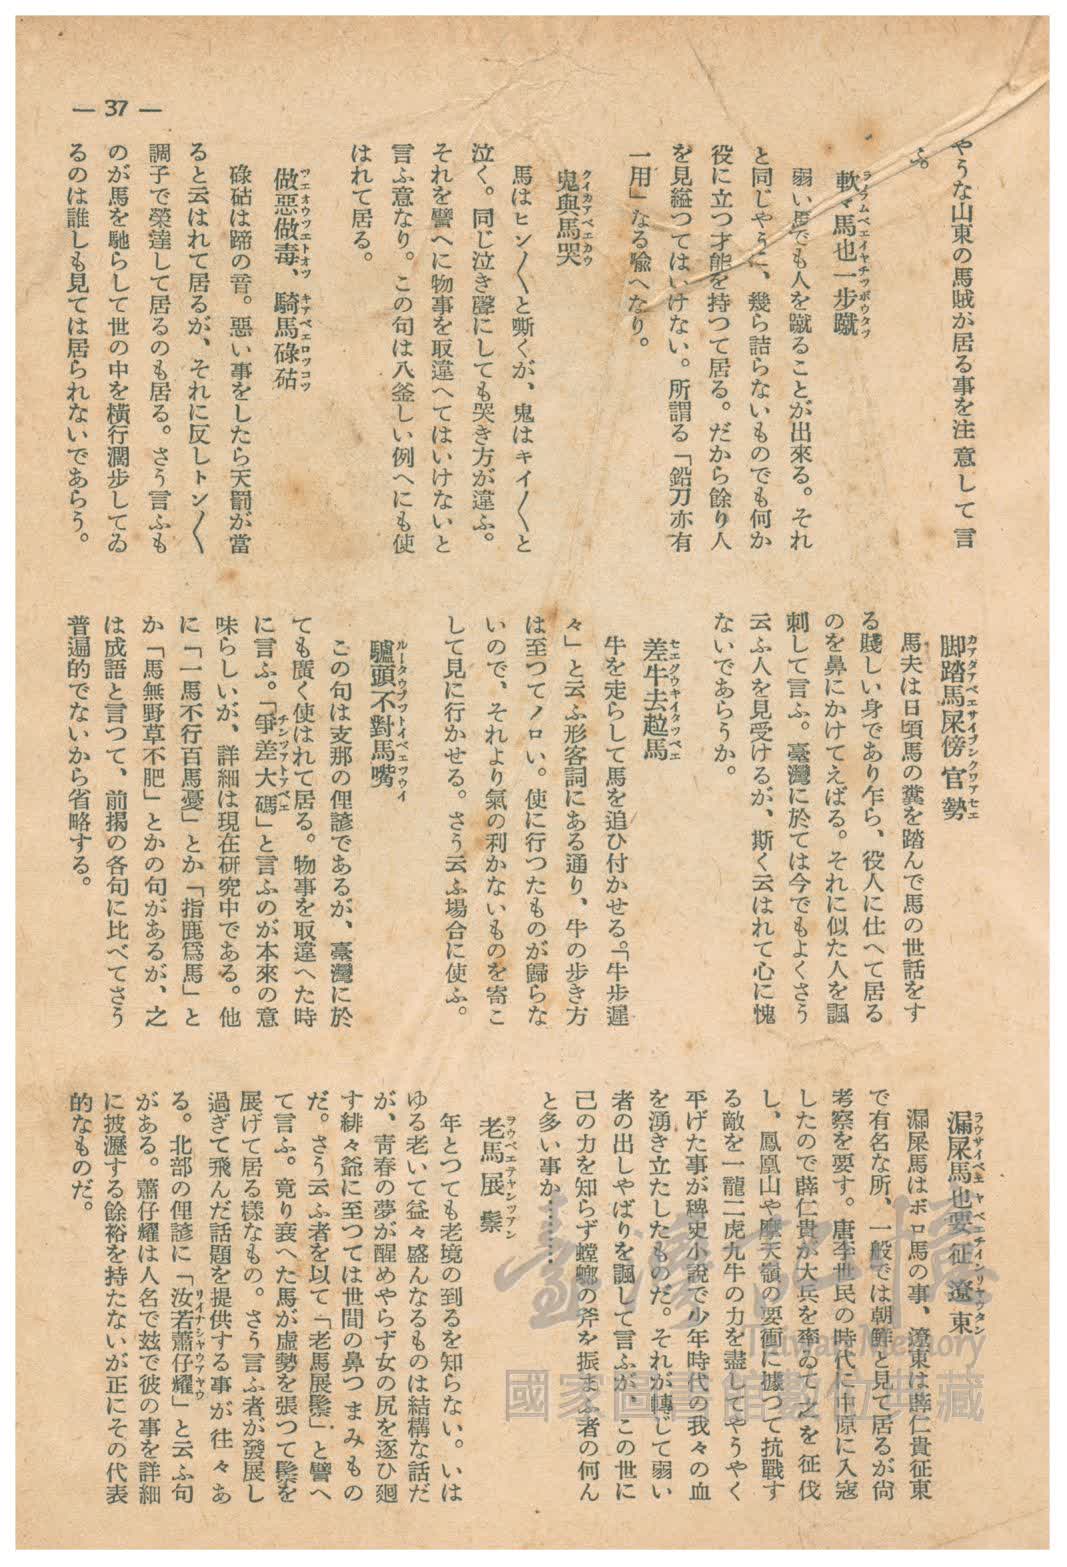 — 37 —
やうな山東の馬賊が居る事を注意して言
ふ。
軟々馬也一步蹴
弱い馬でも人を蹴ることが出來る。それ
と同じやうに、幾ら詰らないものでも何か
役に立つ才能を持つて居る。だから餘り人
を見縊つてはいけない。所謂る「鉛刀亦有
一用」なる喩へなり。
クイカアベエカウ
鬼與馬哭
馬はヒン〳〵と嘶くが、鬼はキイ〳〵と
泣く。同じ泣き聲にしても哭き方が違ふ。
それを譬へに物事を取違へてはいけないと
言ふ意なり。この句は八釜しい例へにも使
はれて居る。
ツエオウツエトオツ　キアベエロツコツ
做惡做毒、騎馬碌硞
碌硞は蹄の音。惡い事をしたら天罰が當
ると云はれて居るが、それに反しトン〳〵
調子で榮達して居るのも居る。さう言ふも
のが馬を馳らして世の中を橫行濶步してゐ
るのは誰しも見ては居られないであらう。
脚踏馬屎傍官勢
馬夫は日頃馬の糞を踏んで馬の世話をす
る賤しい身であり乍ら、役人に仕へて居る
のを鼻にかけてえばる。それに似た人を諷
刺して言ふ。臺灣に於ては今でもよくさう
云ふ人を見受けるが、斯く云はれて心に愧
ないであらうか。
セエグウキイタツベエ
差牛去赹馬
牛を走らして馬を追ひ付かせる。「牛步遲
々」と云ふ形客詞にある通り、牛の步き方
は至つてノロい。使に行つたものが歸らな
いので、それより氣の利かないものを寄こ
して見に行かせる。さう云ふ場合に使ふ。
ルータウプツトイベエツウイ
驢頭不對馬嘴
この句は支那の俚諺であるが、臺灣に於
ても廣く使はれて居る。物事を取違へた時
チンツアトアベエ
に言ふ。「爭差大碼」と言ふのが本來の意
味らしいが、詳細は現在研究中である。他
に「一馬不行百馬憂」とか「指鹿爲馬」と
か「馬無野草不肥」とかの句があるが、之
は成語と言つて、前揭の各句に比べてさう
普遍的でないから省略する。
漏屎馬也要征遼東
漏屎馬はボロ馬の事、遼東は薛仁貴征東
で有名な所、一般では朝鮮と見て居るが尙
考察を要す。唐李世民の時代に中原に入寇
したので薛仁貴が大兵を率ゐて之を征伐
し、鳳凰山や摩天嶺の要衝に據つて抗戰す
る敵を一龍二虎九牛の力を盡してやうやく
平げた事が稗史小說で少年時代の我々の血
を湧き立たしたものだ。それが轉じて弱い
者の出しやばりを諷して言ふが、この世に
己の力を知らず螳螂の斧を振まふ者の何ん
と多い事か………
ラウベエテヤンツアン
老馬展鬃
年とつても老境の到るを知らない。いは
ゆる老いて益々盛んなるものは結構な話だ
が、靑春の夢が醒めやらず女の尻を逐ひ廻
す緋々爺に至つては世間の鼻つまみもの
だ。さう云ふ者を以て「老馬展鬃」と譬へ
て言ふ。竟り衰へた馬が虛勢を張つて鬃を
展げて居る樣なもの。さう言ふ者が發展し
過ぎて飛んだ話題を提供する事が往々あ
リイナシヤウアヤウ
る。北部の俚諺に「汝若蕭仔耀」と云ふ句
がある。蕭仔耀は人名で玆で彼の事を詳細
に披瀝する餘裕を持たないが正にその代表
的なものだ。
臺灣記憶
Taiwan Memory
國家圖書館數位典藏